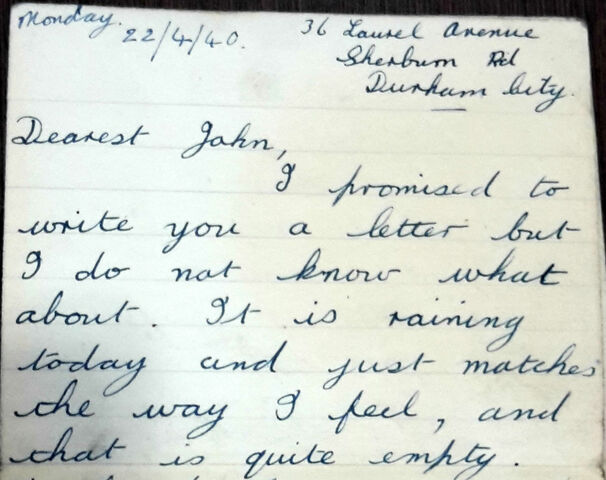 Monday.
22/4/40.
36 Laurel Avenue
Sherburn Rd
Durham City.
Dearest John,
I promised to
write you a letter but
I do not know what
about. It is raining
today and just matches
the way I feel, and
that is quite empty.